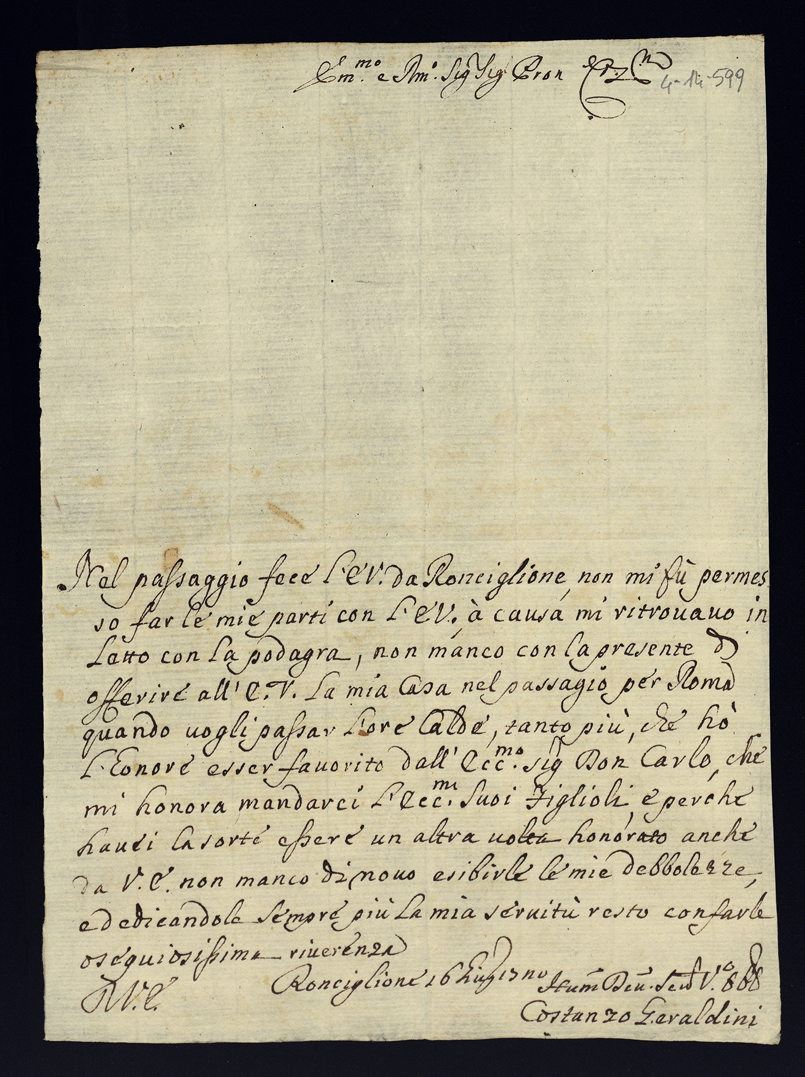 Em.mo e Rm.o Sig.r Sig. Pron
4-14-599
Nel passaggio fece l'E.V. da Ronciglione, non mi fù permes
so far le mie parti con l'E.V. à causa mi ritrouauo in
Letto con la podagra, non manco con la presente di
offerire all'E.V. la mia Casa nel passagio per Roma
quando uogli passar l'ore Calde, tanto più, che hò
l'Eonore esser fauorito dall'Ecc.mo Sig.r Don Carlo, che
mi honora mandarci l'Ecc.mi Suoi Figlioli, e perche
hauei la sorte essere un altra uolta honorato anche
da V.E. non manco di nouo esibirle le mie debbolezze,
e dedicandole sempre più la mia seruitù resto con farle
osequiosissima riuerenza
Ronciglione 16
V.E.
Costanzo Geraldini